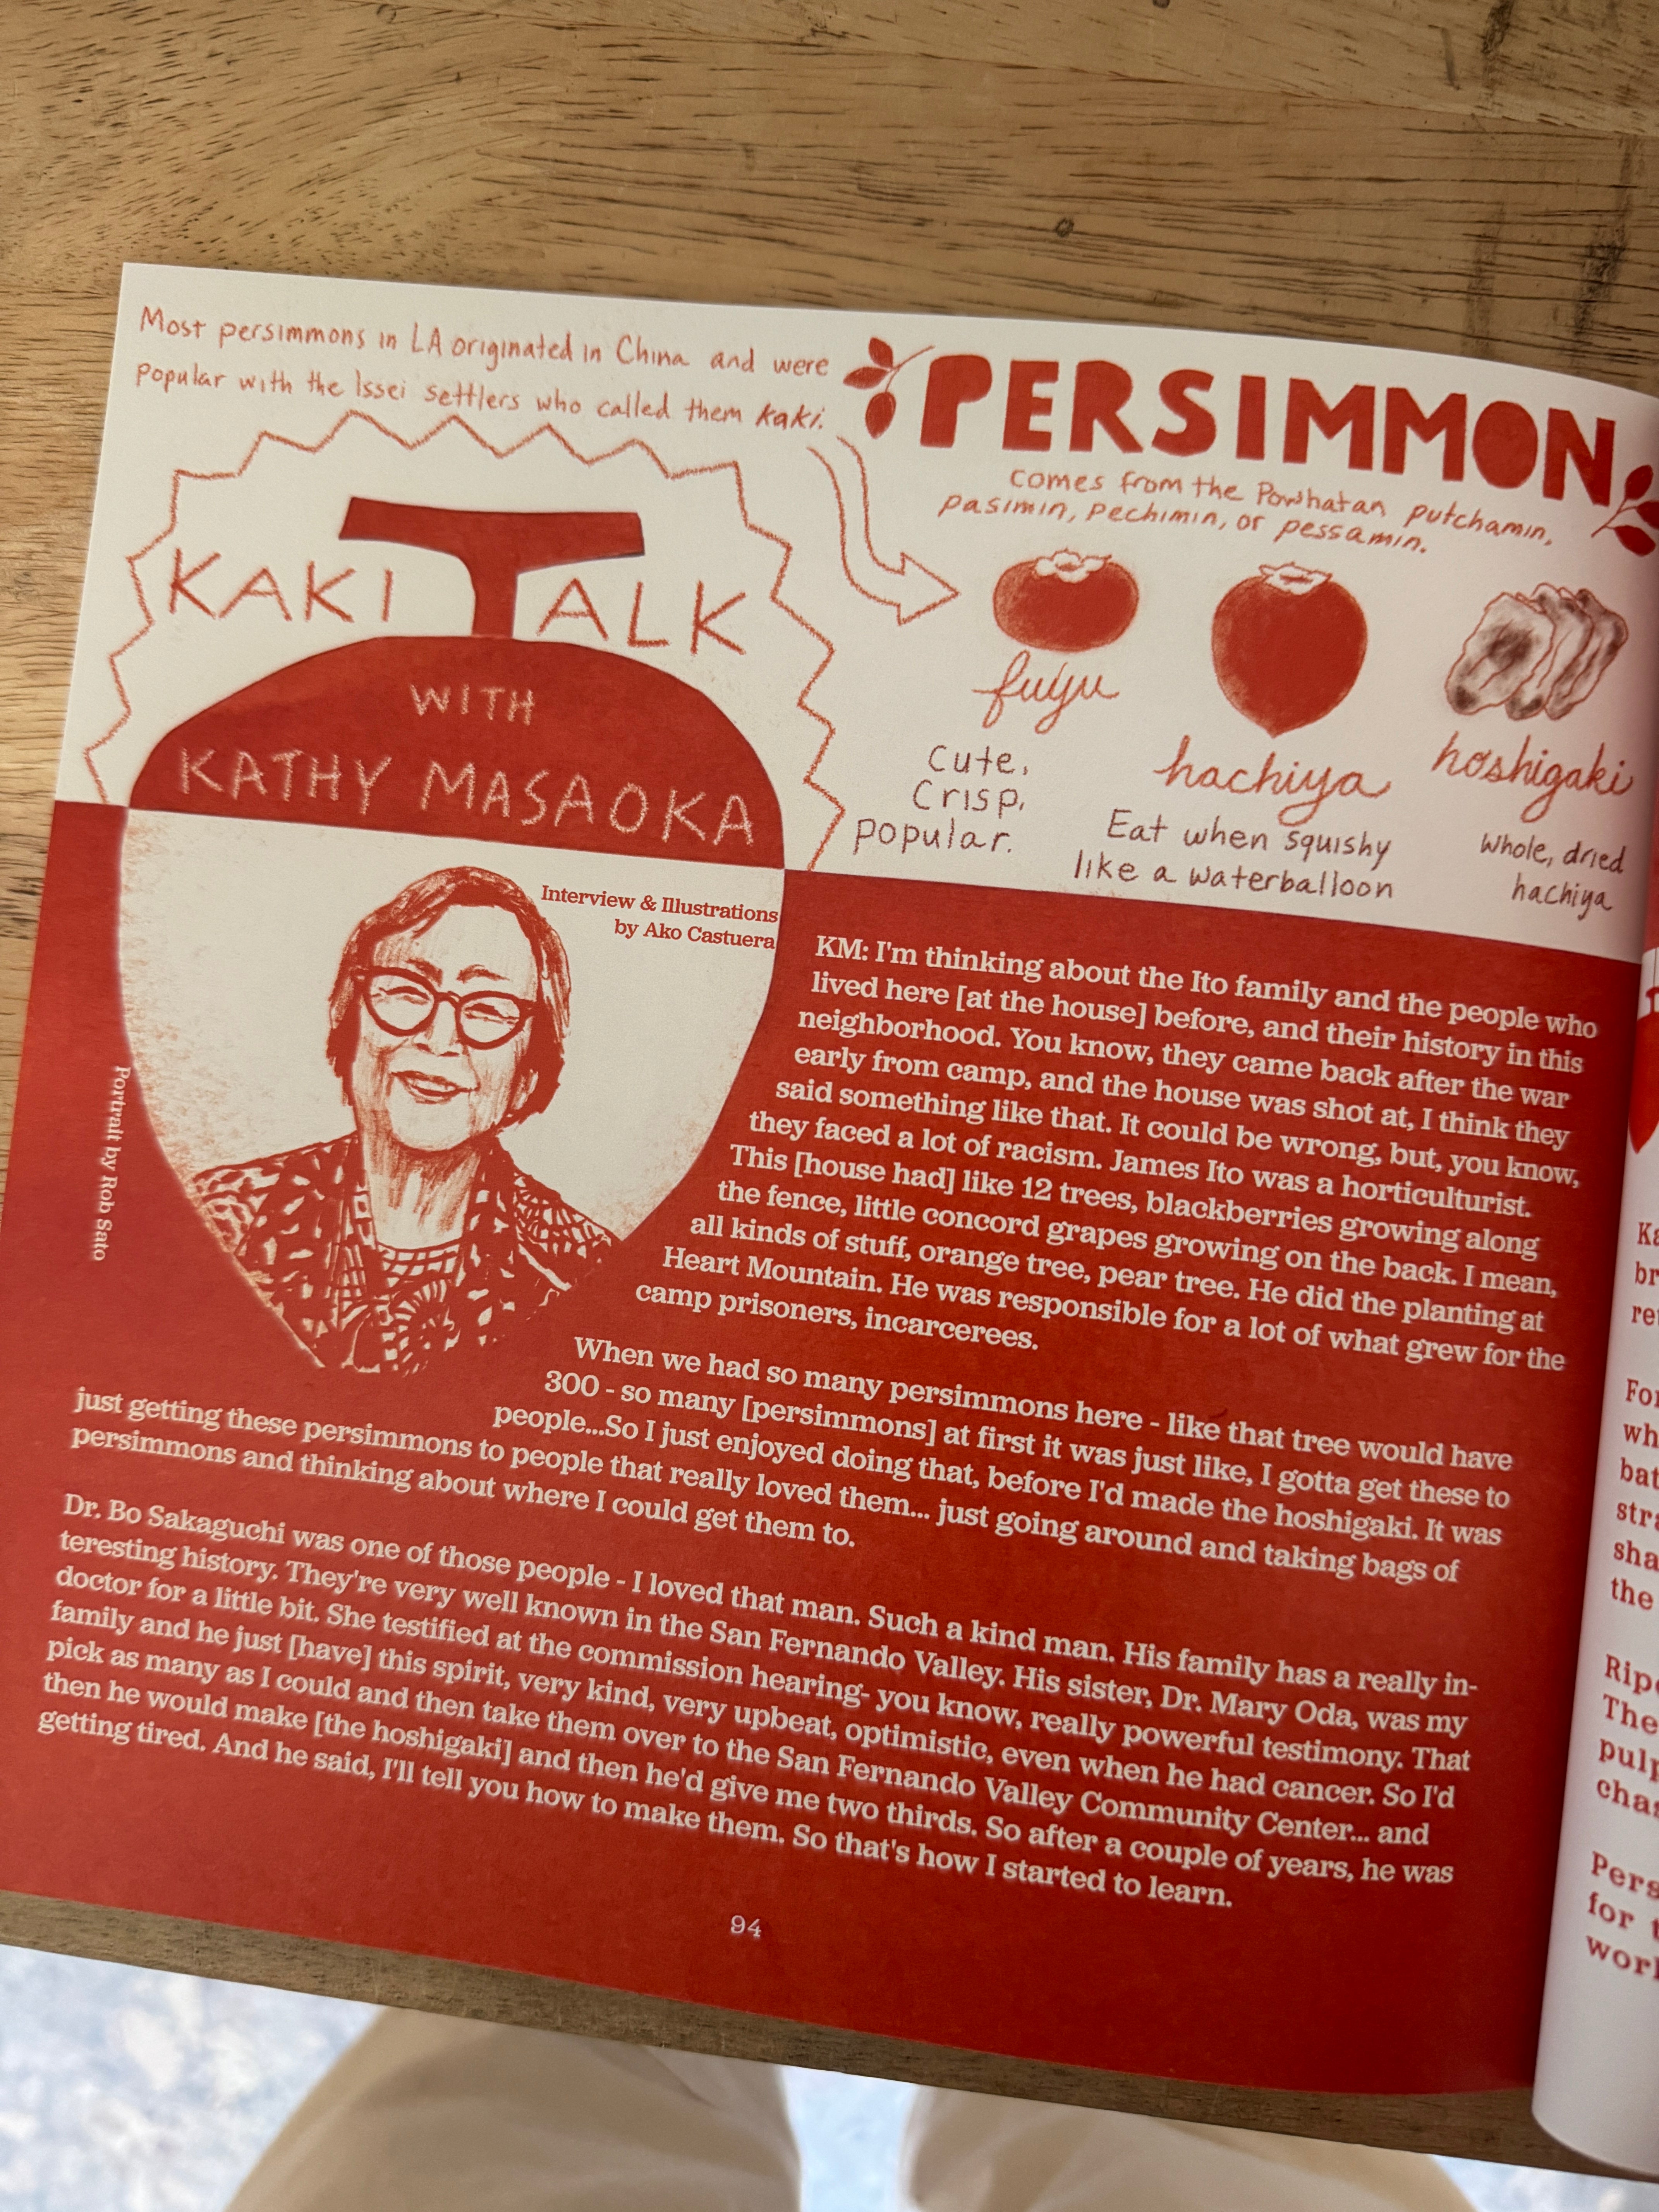 Most persimmons in LA originated in China and were
popular with the Issei settlers who called them kaki.
PERSIMMON
comes from the Powhatan putchamin,
pasimin, pechimin, or pessamin.
KAKI TALK
WITH
KATHY MASAOKA
fuyu
Cute,
Crisp,
popular.
hachiya
Eat when squishy
like a waterballoon
hoshigaki
Whole, dried
hachiya
Interview & Illustrations
by Ako Castuera
Portrait by Rob Sato
KM: I'm thinking about the Ito family and the people who
lived here [at the house] before, and their history in this
neighborhood. You know, they came back after the war
early from camp, and the house was shot at, I think they
said something like that. It could be wrong, but, you know,
they faced a lot of racism. James Ito was a horticulturist.
This [house had] like 12 trees, blackberries growing along
the fence, little concord grapes growing on the back. I mean,
all kinds of stuff, orange tree, pear tree. He did the planting at
Heart Mountain. He was responsible for a lot of what grew for the
camp prisoners, incarcerees.
When we had so many persimmons here - like that tree would have
300 - so many [persimmons] at first it was just like, I gotta get these to
people...So I just enjoyed doing that, before I'd made the hoshigaki. It was
just getting these persimmons to people that really loved them... just going around and taking bags of
persimmons and thinking about where I could get them to.
Dr. Bo Sakaguchi was one of those people - I loved that man. Such a kind man. His family has a really in-
teresting history. They're very well known in the San Fernando Valley. His sister, Dr. Mary Oda, was my
doctor for a little bit. She testified at the commission hearing- you know, really powerful testimony. That
family and he just [have] this spirit, very kind, very upbeat, optimistic, even when he had cancer. So I'd
pick as many as I could and then take them over to the San Fernando Valley Community Center... and
then he would make [the hoshigaki] and then he'd give me two thirds. So after a couple of years, he was
getting tired. And he said, I'll tell you how to make them. So that's how I started to learn.
94
the